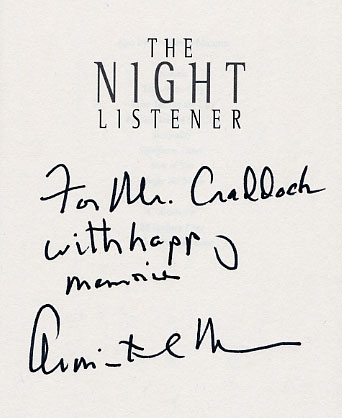 THE
NIGHT
LISTENER
For Mr. Craddock
with happy
memories
Armistead M